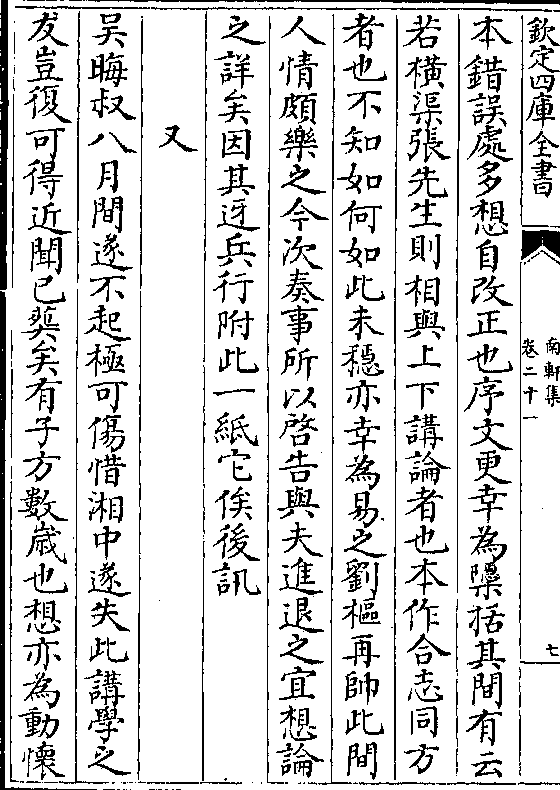 欽定四庫全書
南軒集
卷二十一
七
本錯誤處多想自改正也序文更幸為檃括其間有云
若横渠張先生則相與上下講論者也本作合志同方
者也不知如何如此未穩亦幸為易之劉樞再帥此間
人情頗樂之今次奏事所以啓告與夫進退之宜想論
之詳矣因其迓兵行附此一紙它俟後訊
又
吴晦叔八月間遂不起極可傷惜湘中遂失此講學之
友豈復可得近聞已葬矣有子方數歲也想亦為動懷